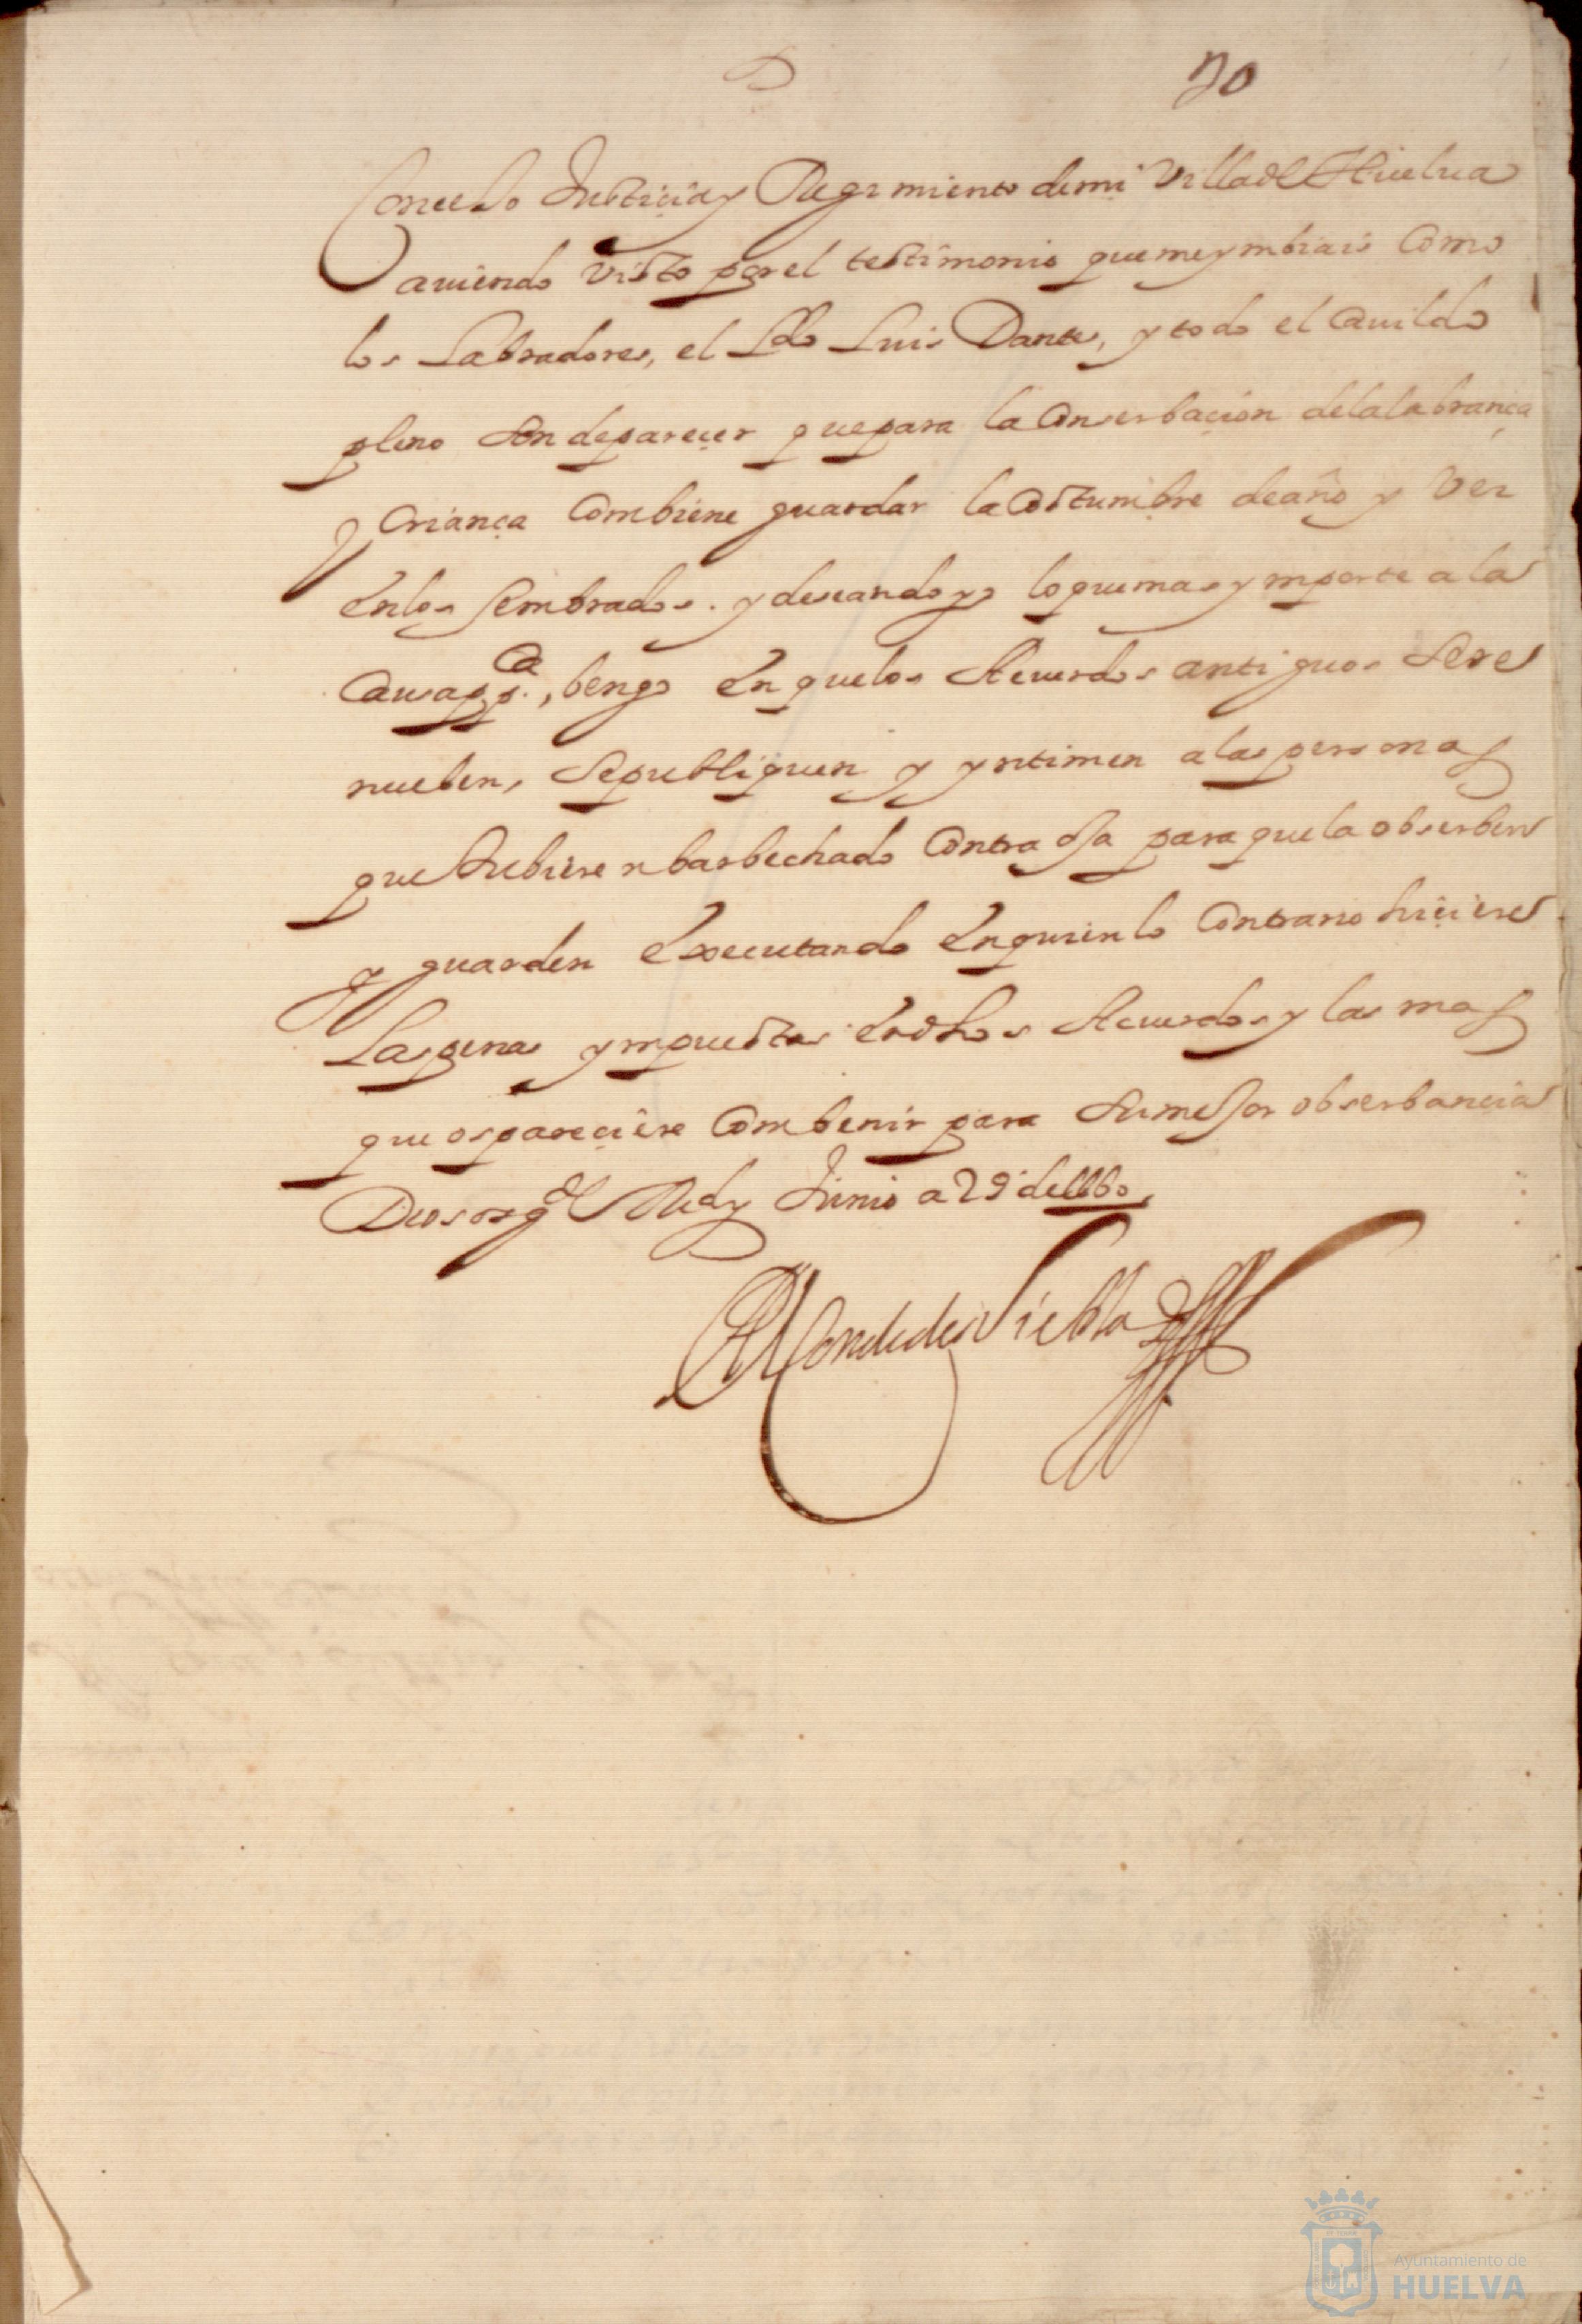 70
Concejo Justiçia y Regimiento de mi Villa de Huelua
auiendo visto por el testimonio que me ymbiais Como
los Labradores, el Ldo Luis Dante, y todo el Cauildo
pleno son de pareçer que para la Conserbaçion de la labrança
y Criança Combiene guardar la Costumbre de año y vez
en los sembrados. y deseando yo lo que mas ymporte a la
Causa ppca., bengo en que los Acuerdos antiguos se re
nueben, se publiquen y yntimen a las personas
que hubieren barbechado Contra ella para que la obserben
y guarden executando en quien lo Contrario hiçiere
Las penas ympuestas en dhos Acuerdos y las mas
que os pareçiere Combenir para su mejor obserbançia
Dios os gde Md y Junio a 29 de 1660
El Conde de Niebla
Ayuntamiento de
HUELVA